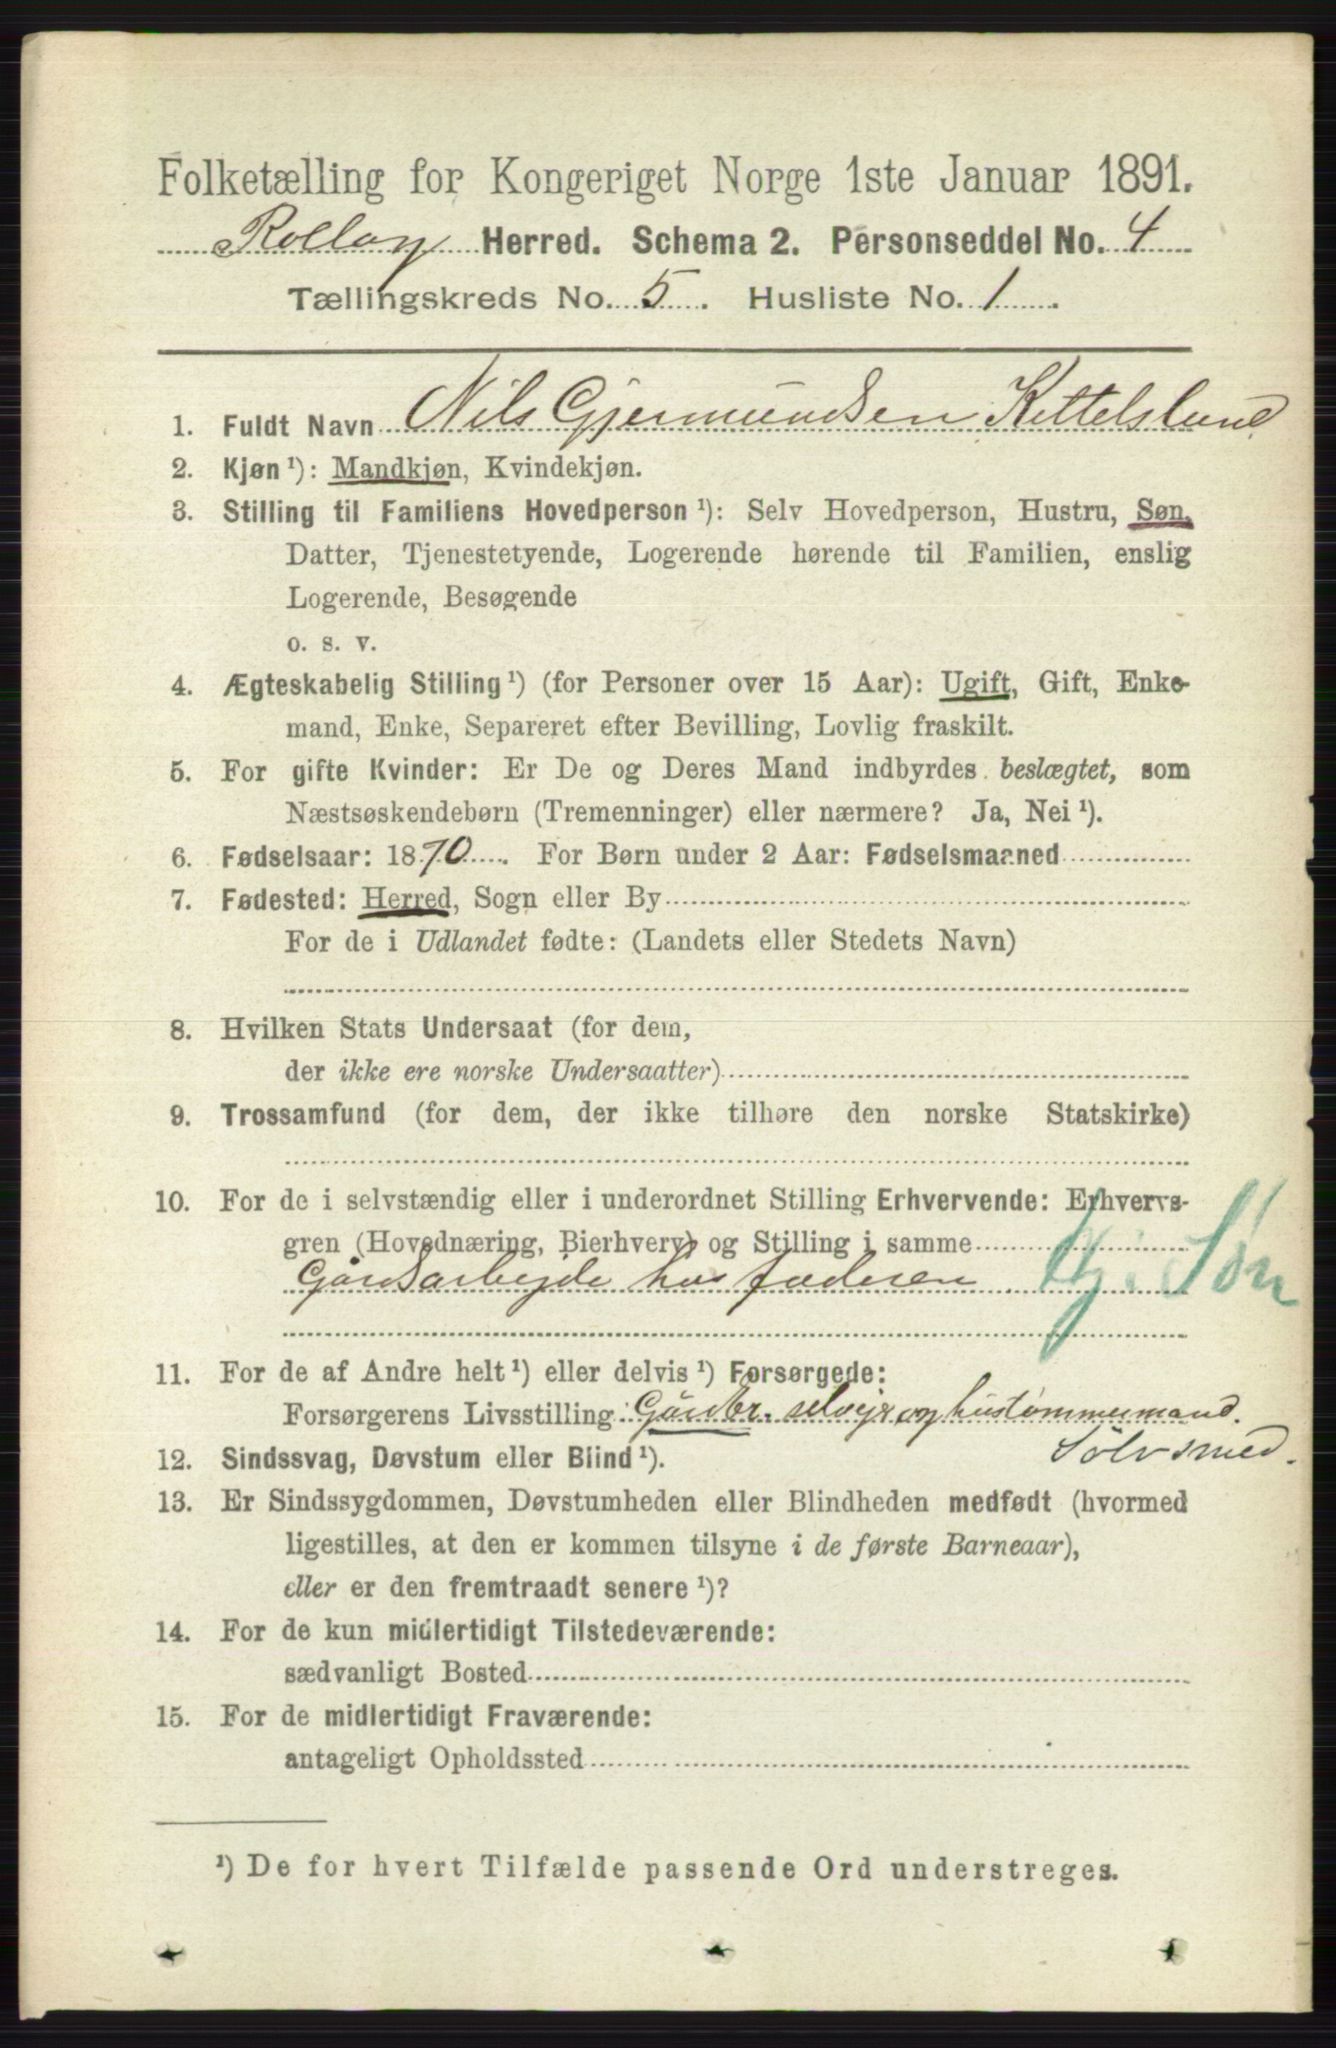 Folketælling for Kongeriget Norge 1ste Januar 1891.
Rollag Herred. Schema 2. Personseddel No. 4
Tællingskreds No. 5. Husliste No. 1.
1. Fuldt Navn Nils Gjermundsen Kittelslund
2. Kjøn ¹): Mandkjøn, Kvindekjøn.
3. Stilling til Familiens Hovedperson ¹): Selv Hovedperson, Hustru, Søn,
Datter, Tjenestetyende, Logerende hørende til Familien, enslig
Logerende, Besøgende
o. s. v.
4. Ægteskabelig Stilling ¹) (for Personer over 15 Aar): Ugift, Gift, Enke-
mand, Enke, Separeret efter Bevilling, Lovlig fraskilt.
5. For gifte Kvinder: Er De og Deres Mand indbyrdes beslægtet, som
Næstsøskendebørn (Tremenninger) eller nærmere? Ja, Nei ¹).
6. Fødselsaar: 1870. For Børn under 2 Aar: Fødselsmaaned
7. Fødested: Herred, Sogn eller By
For de i Udlandet fødte: (Landets eller Stedets Navn)
8. Hvilken Stats Undersaat (for dem,
der ikke ere norske Undersaatter)
9. Trossamfund (for dem, der ikke tilhøre den norske Statskirke)
10. For de i selvstændig eller i underordnet Stilling Erhvervende: Erhvervs-
gren (Hovednæring, Bierhverv) og Stilling i samme
Gårdsarbejde hos faderen Hj. Søn
11. For de af Andre helt ¹) eller delvis ¹) Forsørgede:
Forsørgerens Livsstilling Gårdbr. selvejr og hustømmermand.
Sølvsmed.
12. Sindssvag, Døvstum eller Blind ¹).
13. Er Sindssygdommen, Døvstumheden eller Blindheden medfødt (hvormed
ligestilles, at den er kommen tilsyne i de første Barneaar),
eller er den fremtraadt senere ¹)?
14. For de kun midlertidigt Tilstedeværende:
sædvanligt Bosted
15. For de midlertidigt Fraværende:
antageligt Opholdssted
¹) De for hvert Tilfælde passende Ord understreges.